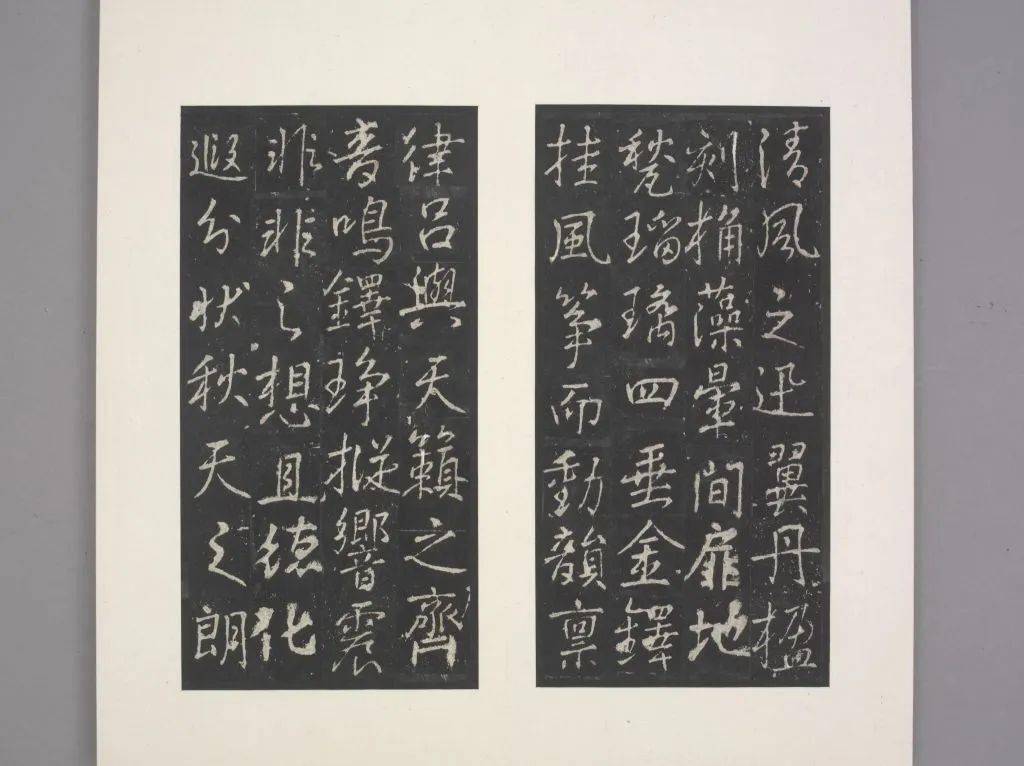 清風之迅翼丹楹
刻桷藻暈間扉地
甃瑠璃四垂金鐸
挂風箏而動韻稟
律呂與天籟之齊
音鳴鐸琤摐響震
非非之想且德化
遐分狀秋天之朗